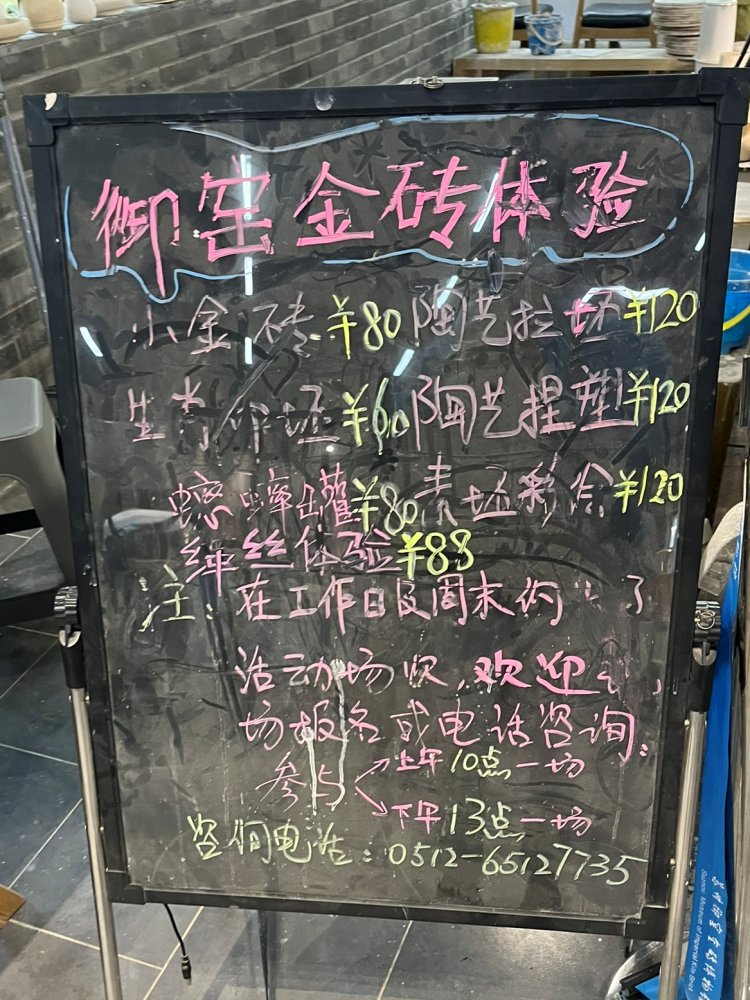 御窑金砖体验
小金砖¥80 陶艺拉坯¥120
生肖印坯¥60 陶艺捏塑¥120
蟋蟀罐¥80 素坯彩绘¥120
缂丝体验¥88
注:在工作日及周末均
活动场次,欢迎
场报名或电话咨询:
参与 上午10点一场
下午13点一场
咨询电话:0512-65127735
苏州御窑金砖博物
Suzhou Museum of Imperial Kiln Brick